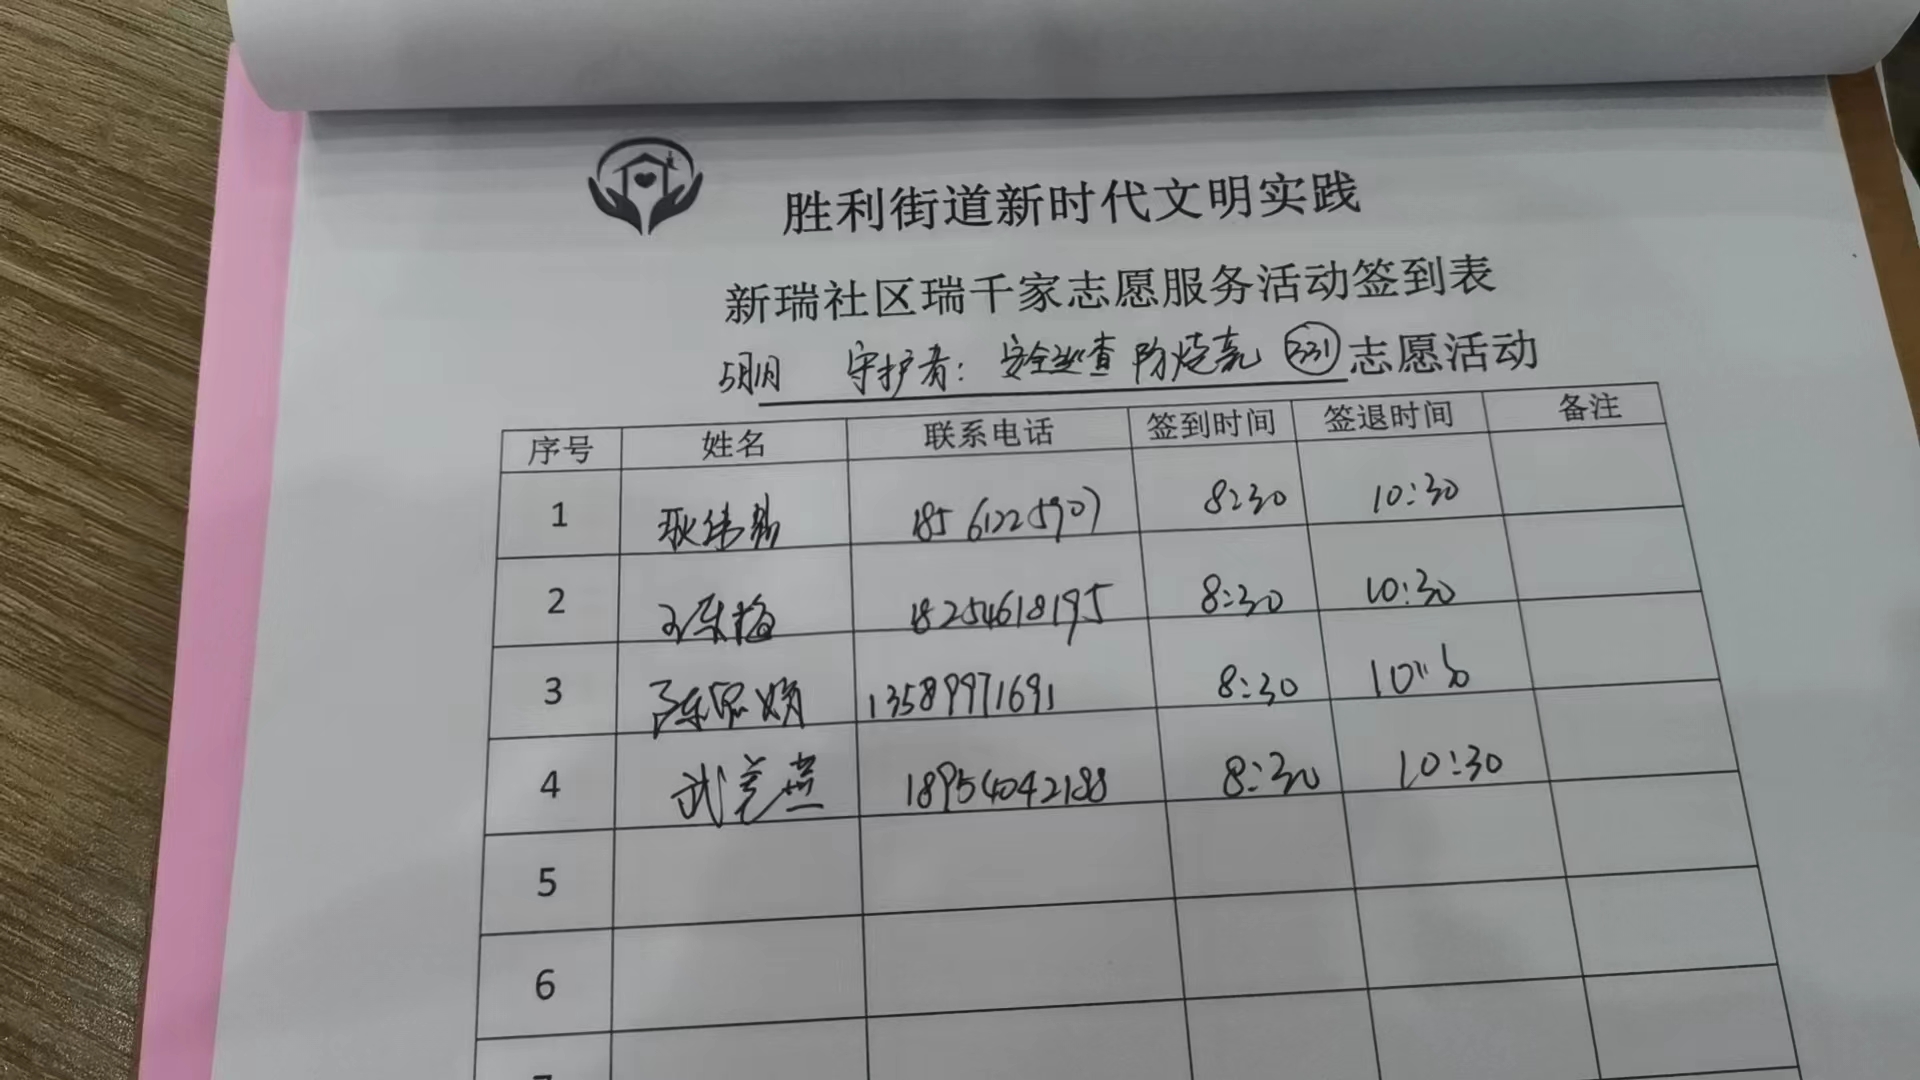 胜利街道新时代文明实践
新瑞社区瑞千家志愿服务活动签到表
守护者：安全巡查 防 331 志愿活动
序号 姓名 联系电话 签到时间 签退时间 备注
1 耿 18561225907 8:30 10:30
2 18254618195 8:30 10:30
3 陈 13589971691 8:30 10:30
4 武 燕 18954042188 8:30 10:30
5
6